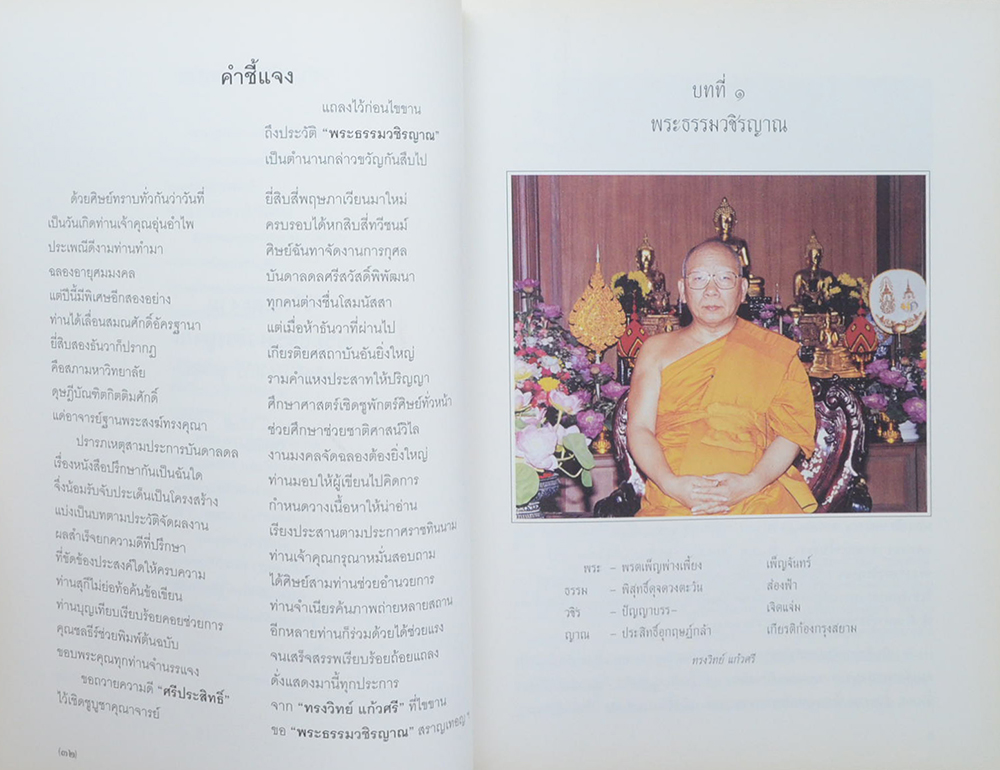 คำชี้แจง
แถลงไว้ก่อนไขขาน
ถึงประวัติ “พระธรรมวชิรญาณ”
เป็นตำนานกล่าวขวัญกันสืบไป
ด้วยศิษย์ทราบทั่วกันว่าวันที่ ยี่สิบสี่พฤษภาเวียนมาใหม่
เป็นวันเกิดท่านเจ้าคุณอุ่นอำไพ ครบรอบได้หกสิบสี่ทวีชนม์
ประเพณีดีงามท่านทำมา ศิษย์ฉันทาจัดงานการกุศล
ฉลองอายุศมมงคล บันดาลดลศรีสวัสดิ์พิพัฒนา
แต่ปีนี้มีพิเศษอีกสองอย่าง ทุกคนต่างชื่นโสมนัสสา
ท่านได้เลื่อนสมณศักดิ์อัครฐานา แต่เมื่อห้าธันวาที่ผ่านไป
ยี่สิบสองธันวาก็ปรากฏ เกียรติยศสถาบันอันยิ่งใหญ่
คือสภามหาวิทยาลัย รามคำแหงประสาทให้ปริญญา
ดุษฎีบัณฑิตกิตติมศักดิ์ ศึกษาศาสตร์เชิดชูพักตร์ศิษย์ทั่วหน้า
แด่อาจารย์ฐานพระสงฆ์ทรงคุณา ช่วยศึกษาช่วยชาติศาสน์วิไล
ปรารภเหตุสามประการบันดาลดล งานมงคลจัดฉลองต้องยิ่งใหญ่
เรื่องหนังสือปรึกษากันเป็นฉันใด ท่านมอบให้ผู้เขียนไปคิดการ
จึ่งน้อมรับจับประเด็นเป็นโครงสร้าง กำหนดวางเนื้อหาให้น่าอ่าน
แบ่งเป็นบทตามประวัติจัดผลงาน เรียงประสานตามประกาศราชทินนาม
ผลสำเร็จยกความดีที่ปรึกษา ท่านเจ้าคุณกรุณาหมั่นสอบถาม
ที่ขัดข้องประสงค์ใดให้ครบความ ได้ศิษย์สามท่านช่วยอำนวยการ
ท่านสุกีไม่ย่อท้อค้นข้อเขียน ท่านจำเนียรค้นภาพถ่ายหลายสถาน
ท่านบุญเทียบเรียบร้อยคอยช่วยการ อีกหลายท่านก็ร่วมด้วยได้ช่วยแรง
คุณชลธีร์ช่วยพิมพ์ต้นฉบับ จนเสร็จสรรพเรียบร้อยถ้อยแถลง
ขอบพระคุณทุกท่านจำนรรแจง ดั่งแสดงมานี้ทุกประการ
ขอถวายความดี “ศรีประสิทธิ์” จาก “ทรงวิทย์ แก้วศรี” ที่ไขขาน
ไว้เชิดชูบูชาคุณาจารย์ ขอ “พระธรรมวชิรญาณ” สราญเทอญ ฯ
(๓๒)
บทที่ ๑
พระธรรมวชิรญาณ
พระ – พรตเพ็ญพ่างเพี้ยง เพ็ญจันทร์
ธรรม – พิสุทธิ์ดุจดวงตะวัน ส่องฟ้า
วชิร – ปัญญาบรร– เจิดแจ่ม
ญาณ – ประสิทธิ์อุกฤษฎ์กล้า เกียรติก้องกรุงสยาม
ทรงวิทย์ แก้วศรี